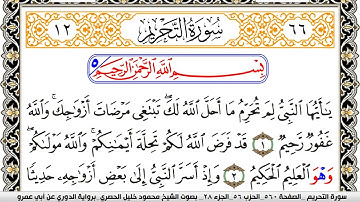 ٦٦ سُورَةُ التَّحْرِيمِ ١٢
بِسْمِ اللَّهِ الرَّحْمَٰنِ الرَّحِيمِ ٥
يَٰأَيُّهَا النَّبِيُّ لِمَ تُحَرِّمُ مَا أَحَلَّ اللَّهُ لَكَ تَبْتَغِي مَرْضَاتَ أَزْوَٰجِكَ وَاللَّهُ
غَفُورٌ رَّحِيمٌ ١ قَدْ فَرَضَ اللَّهُ لَكُمْ تَحِلَّةَ أَيْمَٰنِكُمْ وَاللَّهُ مَوْلَىٰكُمْ
وَهْوَ الْعَلِيمُ الْحَكِيمُ ٢ وَإِذْ أَسَرَّ النَّبِيُّ إِلَىٰ بَعْضِ أَزْوَٰجِهِ حَدِيثًا
سورة التحريم _ الصفحة ٥٦٠ _ الحزب ٥٦ _ الجزء ٢٨ _ بصوت الشيخ محمود خليل الحصري _ برواية الدوري عن أبي عمرو